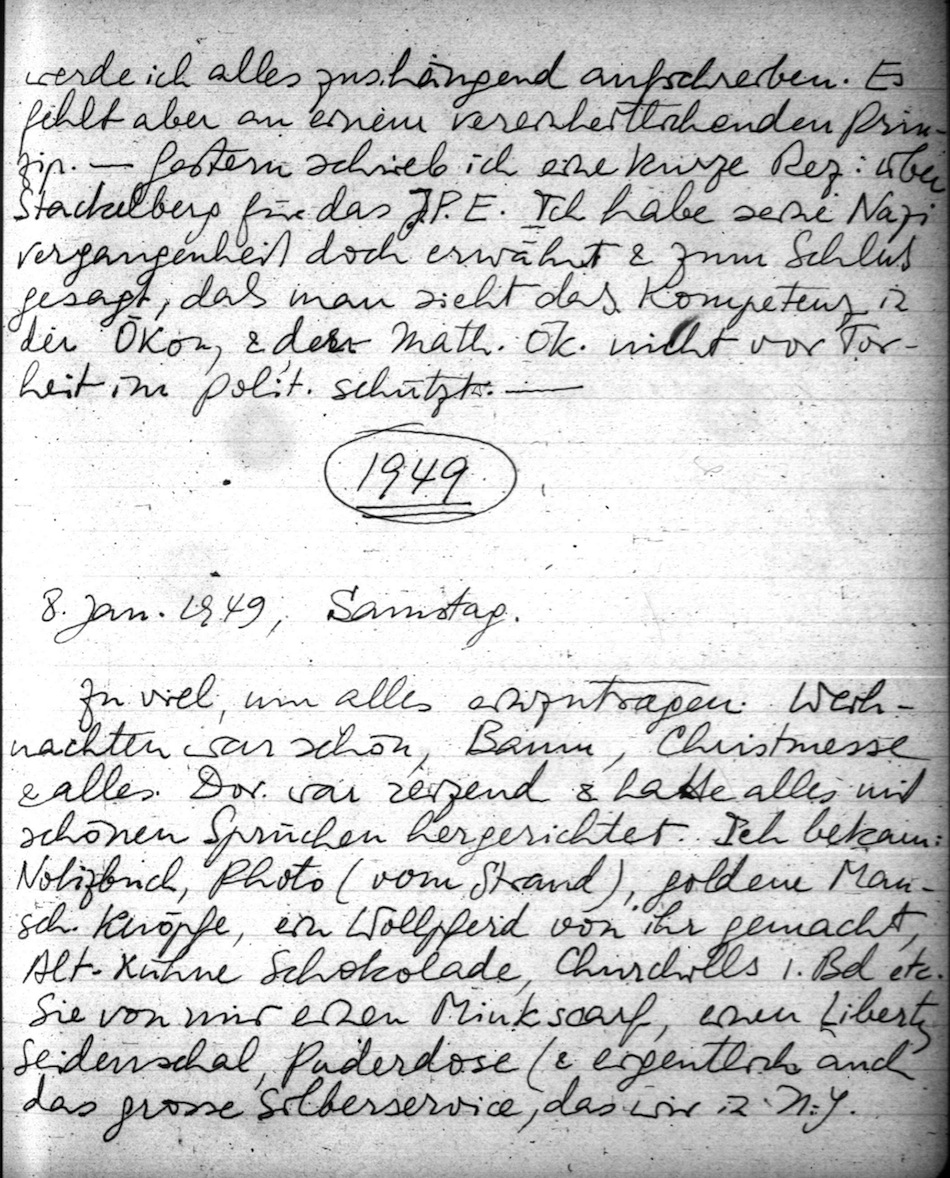 werde ich alles zus.hängend aufschreiben. Es
fehlt aber an einem vereinheitlichenden Prin-
zip. — Gestern schrieb ich eine kurze Rez. über
Stackelberg für das J.P.E. Ich habe seine Nazi
vergangenheit doch erwähnt & zum Schluß
gesagt, daß man sieht daß Kompetenz in
der Ökon, & der Math. Ök. nicht vor Tor-
heit im polit. schützt. —
1949
8. Jan. 1949, Samstag.
Zu viel, um alles einzutragen. Weih-
nachten war schön, Baum, Christmesse
& alles. Dor. war reizend & hatte alles mit
schönen Sprüchen hergerichtet. Ich bekam:
Notizbuch, Photo (vom Strand), goldene Man-
sch. Knöpfe, ein Wollpferd von ihr gemacht,
Alt-Kühne Schokolade, Churchills 1. Bd etc.
Sie von mir einen Minkscarf, einen Liberty
Seidenschal, Puderdose (& eigentlich auch
das grosse Silberservice, das wir in N.Y.